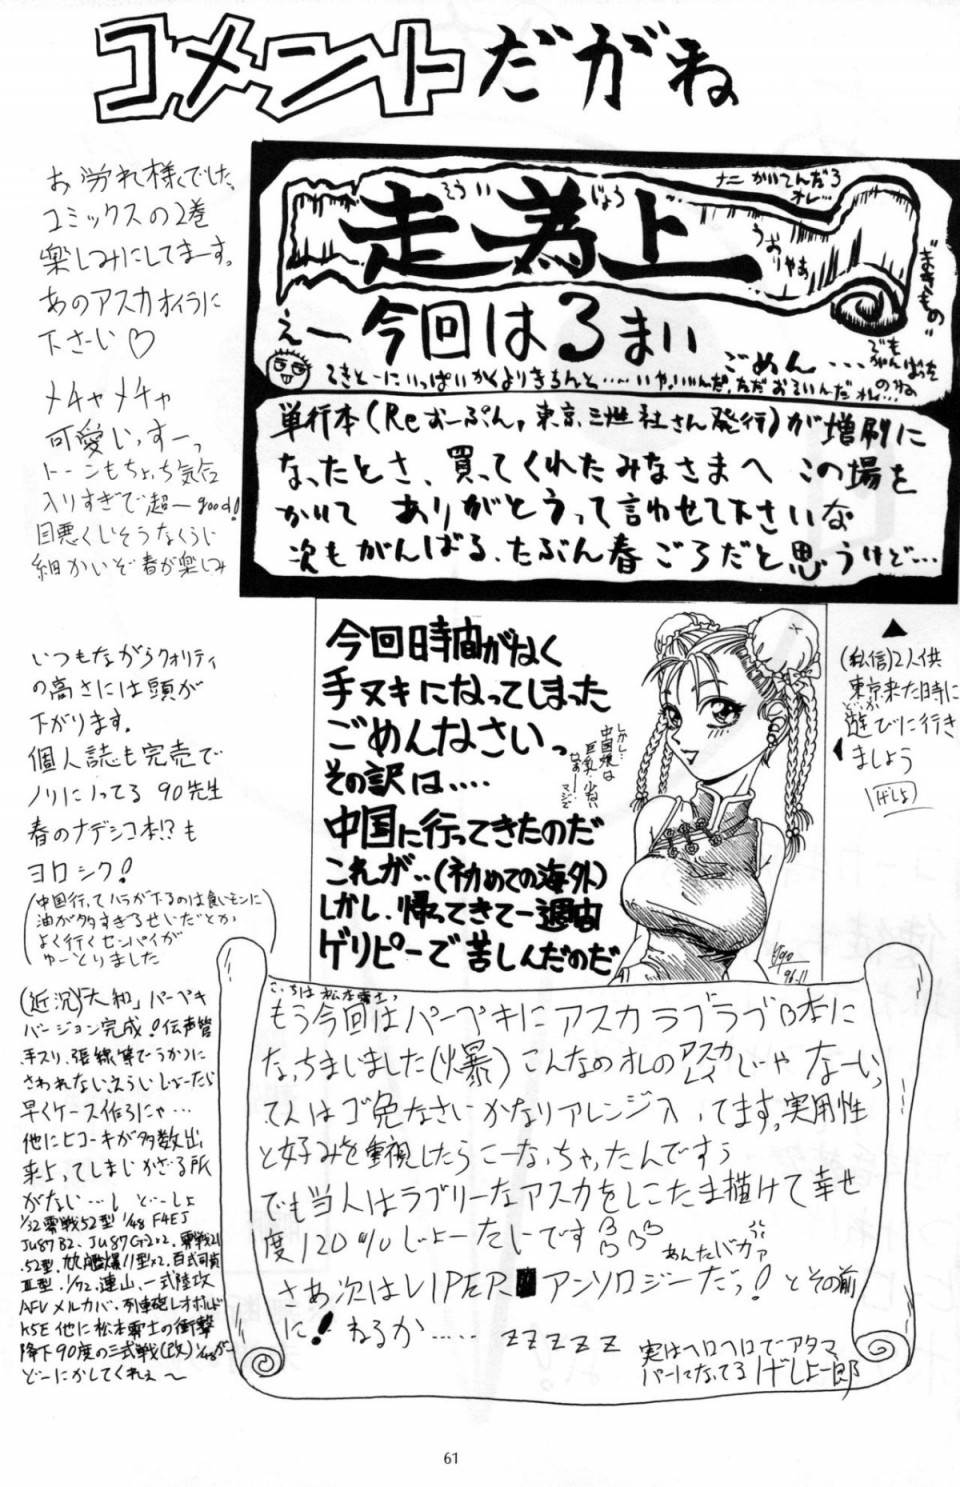 コメントだがね
お労れ様でした。
コミックスの2巻
楽しみにしてまーす。
あのアスカオイラに
下さーい♡
メチャメチャ
可愛いっすーっ
トーンもちょっち気合
入りすぎで超ーgood!
目悪くしそうなくらい
細かいぞ春が楽しみ
走為上
そう
じょう
ナニかいてんだろ
オレ…
うおりゃあ
"まきもの"
えー今回はるまい
ごめん....
でも
がんばった
のよね
てきとーにいっぱいかくよりきちんと……いや、いいんだ、ただおそいんだオレ…
単行本(Reおーぷん,東京三世社さん発行)が増刷に
なったとさ、買ってくれたみなさまへ この場を
かりて ありがとうって言わせて下さいな
次もがんばる、たぶん春ごろだと思うけど…
いつもながらクォリティ
の高さには頭が
下がります。
個人誌も完売で
ノリにノッてる 90先生
春のナデシコ本!?も
ヨロシク!
(中国行ってハラが下るのは食いモンに
油が多すぎるせいだとか
よく行くセンパイが
ゆーとりました)
今回時間がなく
手ヌキになってしまった
ごめんなさいっ
その訳は....
中国に行ってきたのだ
これが..(初めての海外)
しかし、帰ってきて一週間
ゲリピーで苦しんだのだ
しかし…
中国娘は
巨乳、少ない
マジで
96.11
▲
(私信)2人供
東京来た時に
どいか
遊びに行き
ましょう
げしょ
(近況)「大和」パーペキ
バージョン完成!伝声管
手スリ、張線等でうかつに
さわれない、えらいじょーたい
早くケース作ろにゃ…
他にヒコーキが多数出
来上ってしまいかざる所
がない…し、どーしょ
1/32零戦52型 1/48 F4EJ
JU87B2、JU87G2×2、零戦21
,52型、九九艦爆11型×2、百式司偵
III型、1/72、連山、一式陸攻
AFVメルカバ、列車砲レオポルド
K5E 他に松本零士の衝撃
降下90度の三式戦(改)1/48がー
どーにかしてくれぇ〜
こっちは松本零士、
もう今回はパーペキにアスカラブラブ本に
なっちまいました(爆) こんなのオレのアスカ
レイ
じゃなーいっ
て人はゴ免なさいかなりアレンジ入ってます。実用性
と好みを重視したらこーなっちゃったんですぅ
でも当人はラブリーなアスカをしこたま描けて幸せ
度120%じょーたいです
あんたバカァ
さあ次はVIPERアンソロジーだっ! とその前
に! ねるか…… ZZZZZ
実はヘロヘロでアタマ
パーになってる げしょ一郎
61